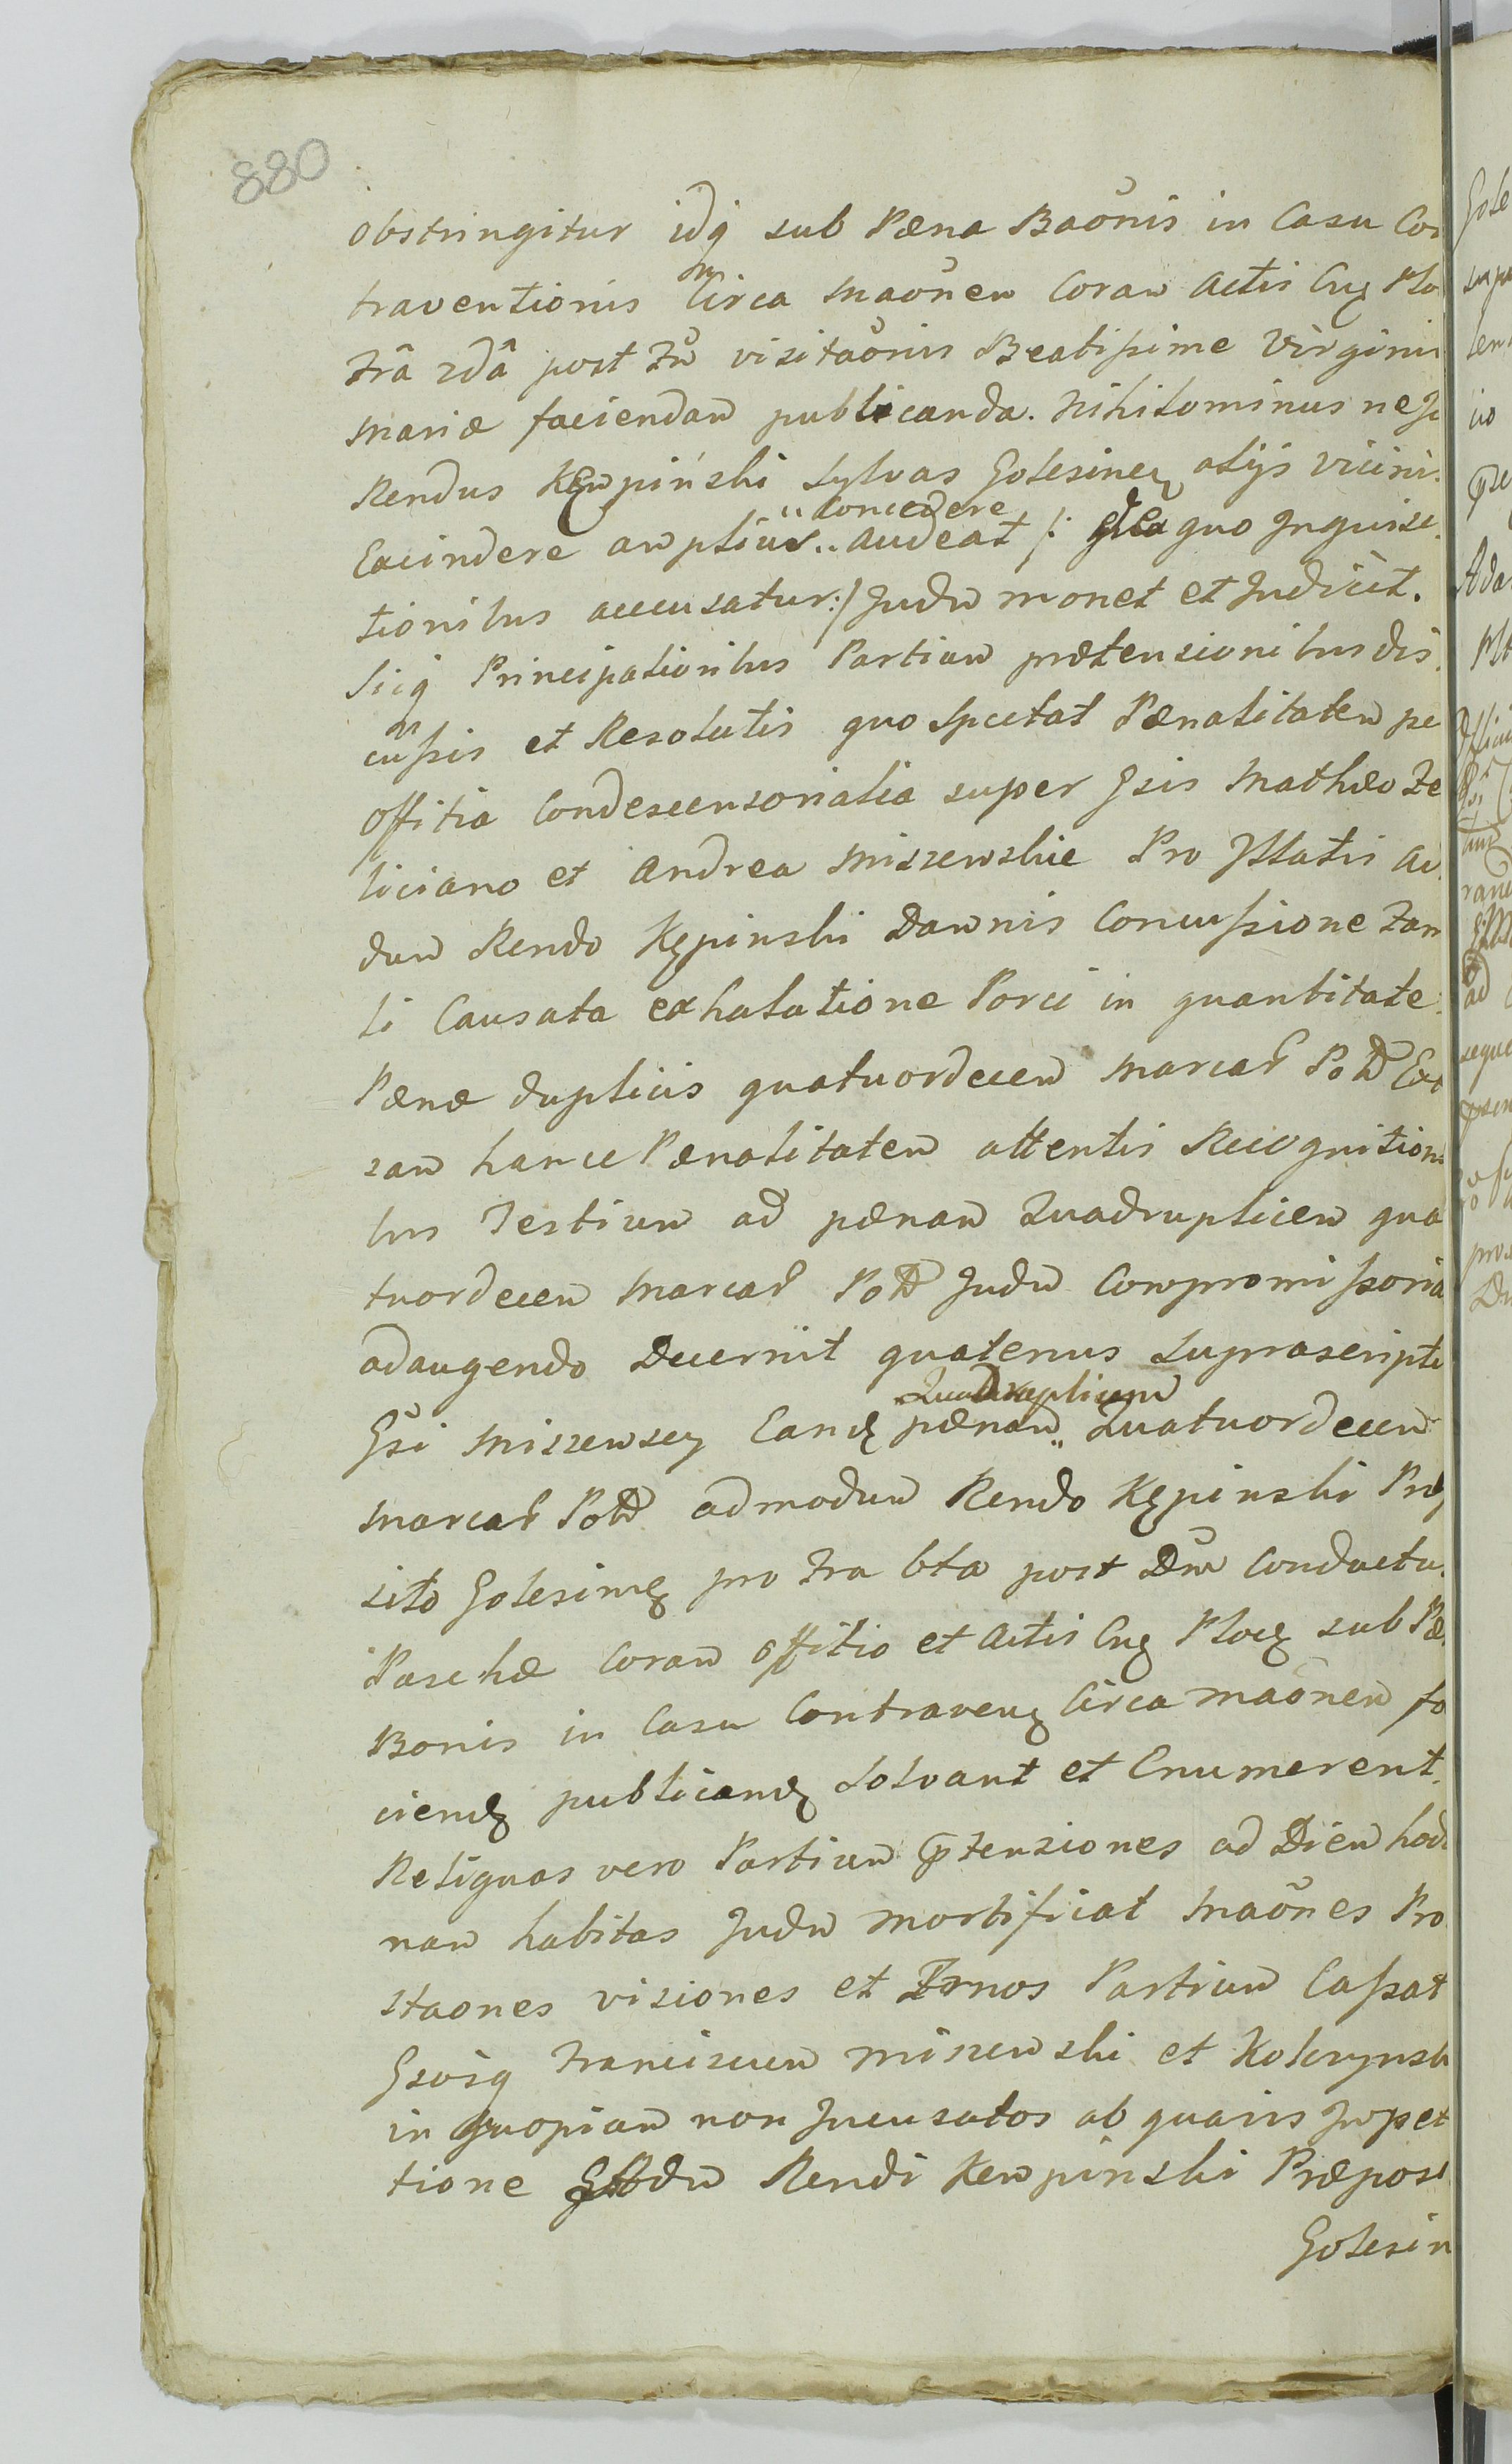 880
obstringitur idq sub Pæna Baõnis in Casu Con
traventionis Circa Maõnem Coram Actis Crg Plo
fra 2da post Fm visitaõnis Beatissime Virginis
Mariæ faciendam publicanda. Nihilominus ne
Rendus Kempiński Sylvas Golesineg alijs vicini
Concedere
Excindere amplius audeat /: de quo Inquisi
tionibus accusatur :/ Judm monet et Judicit.
Sicq Principalioribus Partium prætensionibus dis
cussis et Resolutis quo spectat Pænalitatem pe
Offitia Condescensorialia super Gsis Mathæo Fe
liciano et Andrea Miszewskie Pro Illatis Ad
dum Rendo Kępinski Damnis Concussione Fam
li Causata exhalatione Porci in quantitate
Pænæ duplicis quatuordecem Marcar Pol
sam hancce Pænalitatem attentis Recognitioni
bus Testium ad pænam Quadruplicem qua
tuordecem Marcar Pol Judm Compromissoria
adaugendo Decernit quatenus Suprascripti
Quadruplicem
Gsi Miszewscy Eand pænam Quatuordecem
Marcar Pol admodum Rendo Kępinski Præ
sito Golesineg pro fra 6ta post Dm Conductu
Paschæ Coram Offitio et Actis Crg Plocg sub Pæ
Bonis in Casu Contraveng Circa Maõnem fa
ciendg publicandg Solvant et Enumerent.
Reliquas vero Partium ptensiones ad Diem hod
nam habitas Judm mortificat Maõnes Pro
staones visiones et Frnos Partium Cassat
Gsosq Franciscum Miszewski et Kolczynsk
in quopiam non Incusatos ab quavis Impet
tione Rendi Kempinski Præpos
Golesin